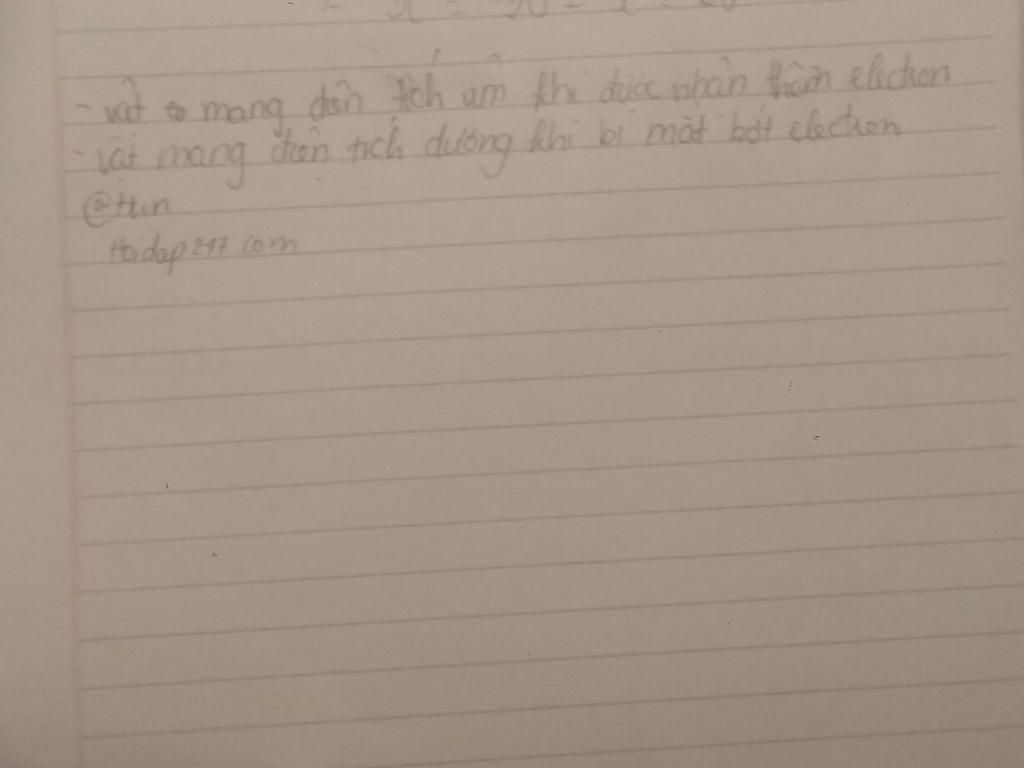 - vật mang điện tích âm khi được nhận thêm electron
- vật mang điện tích dương khi bị mất bớt electron
@Hun
Hoidap247.com